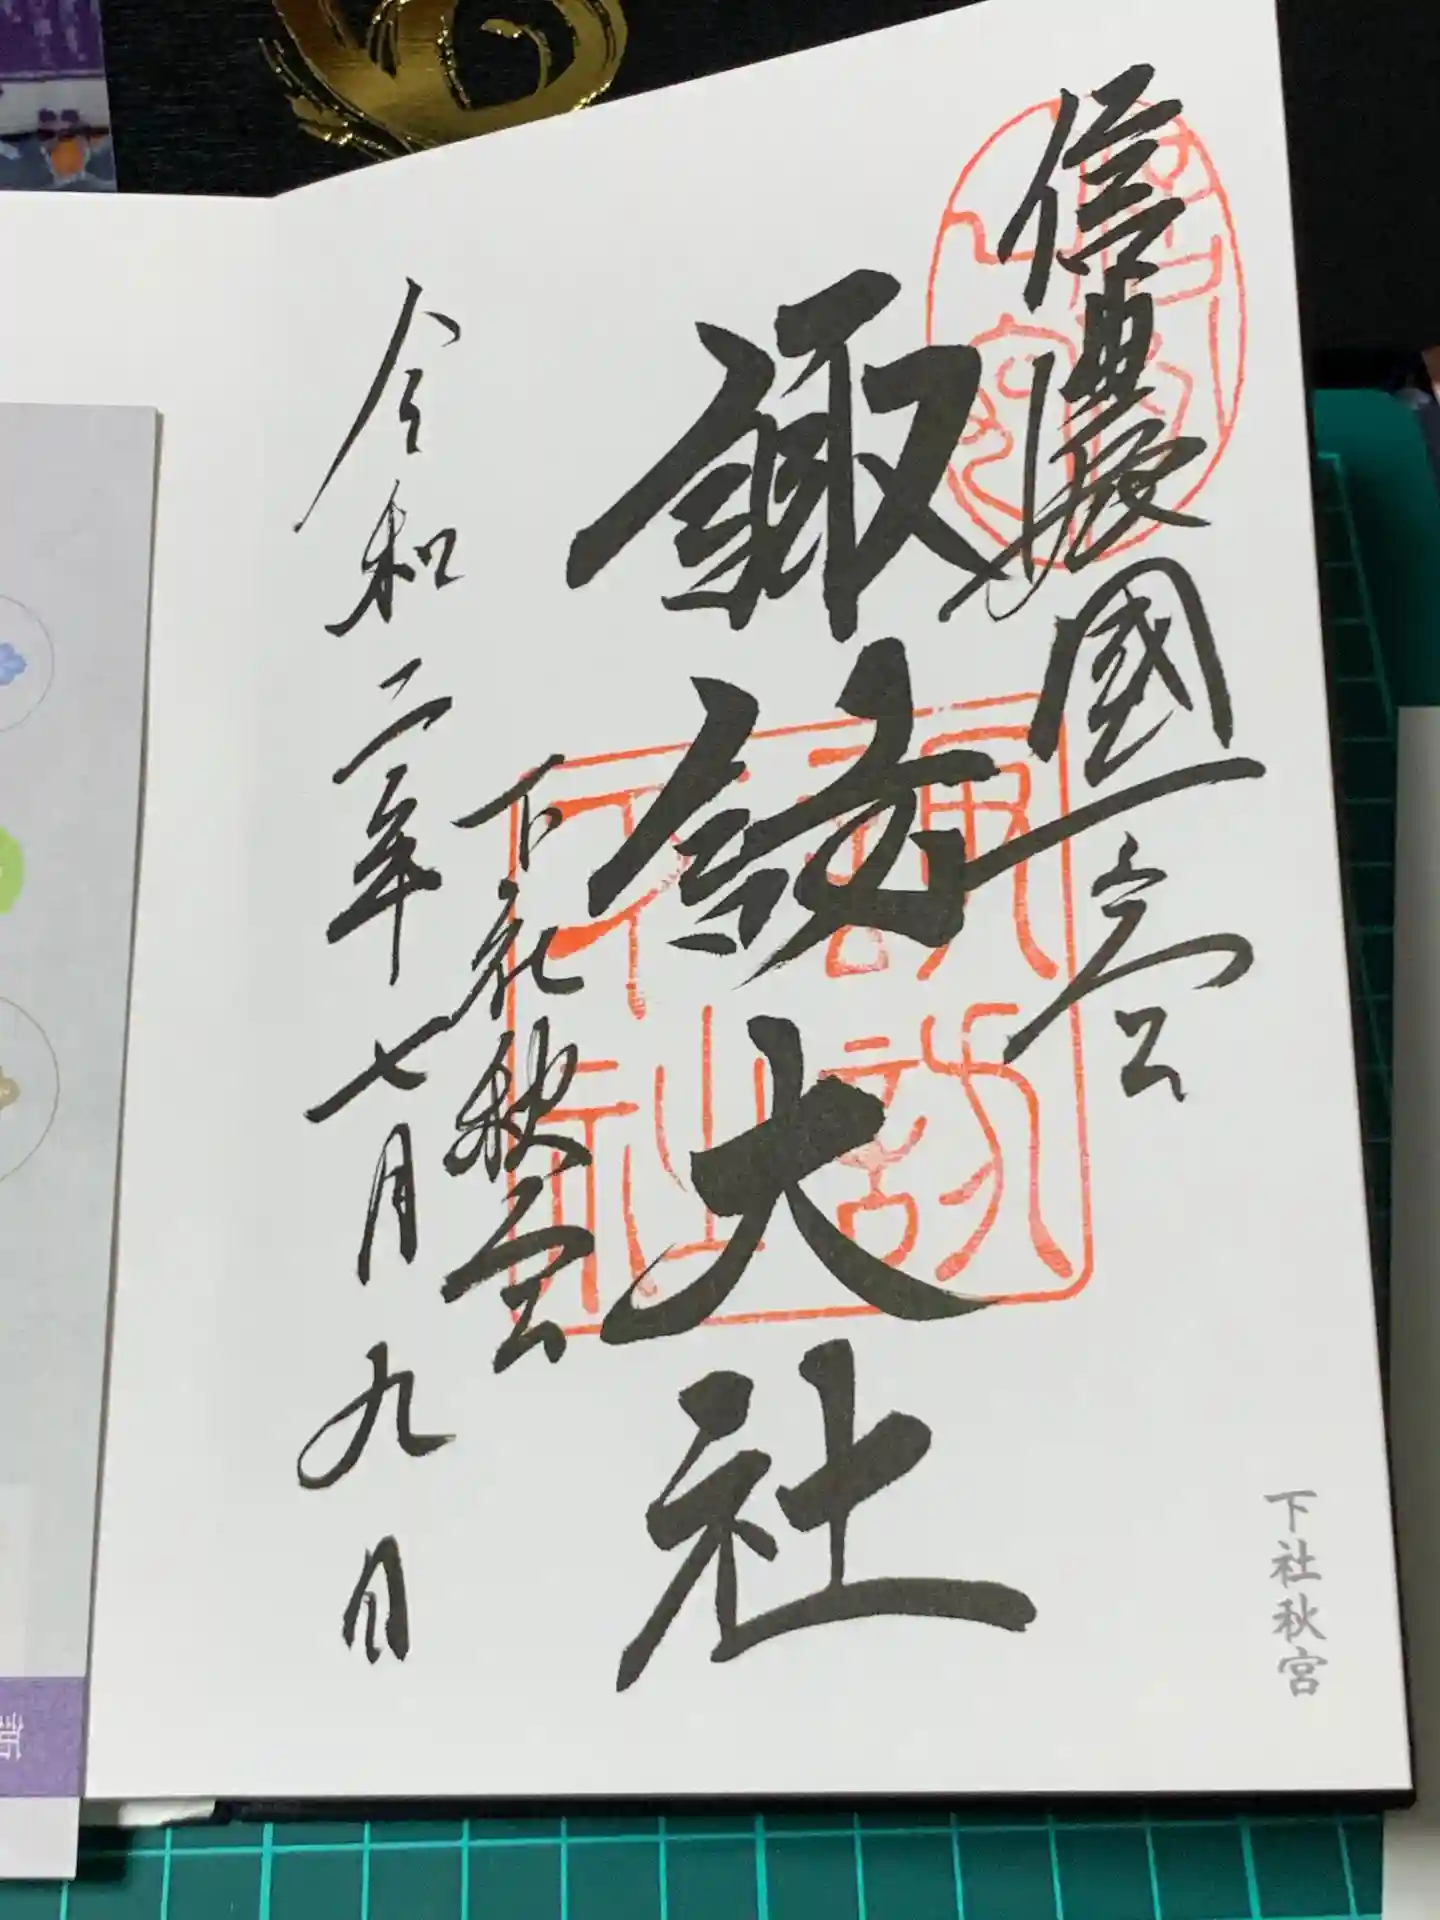 信濃國一宮
諏訪大社
下社秋宮
令和二年七月九日
諏訪
下社
下社秋宮